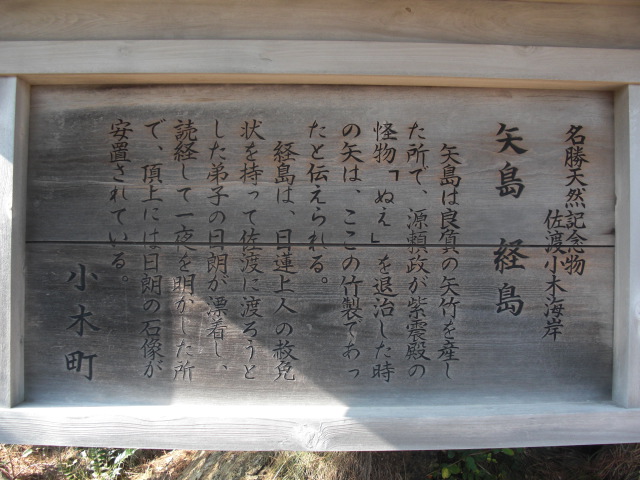 名勝天然記念物
佐渡小木海岸
矢島 経島
矢島は良質の矢竹を産し
た所で、源頼政が紫震殿の
怪物「ぬえ」を退治した時
の矢は、ここの竹製であっ
たと伝えられる。
経島は、日蓮上人の赦免
状を持って佐渡に渡ろうと
した弟子の日朗が漂着し、
読経して一夜を明かした所
で、頂上には日朗の石像が
安置されている。
小木町